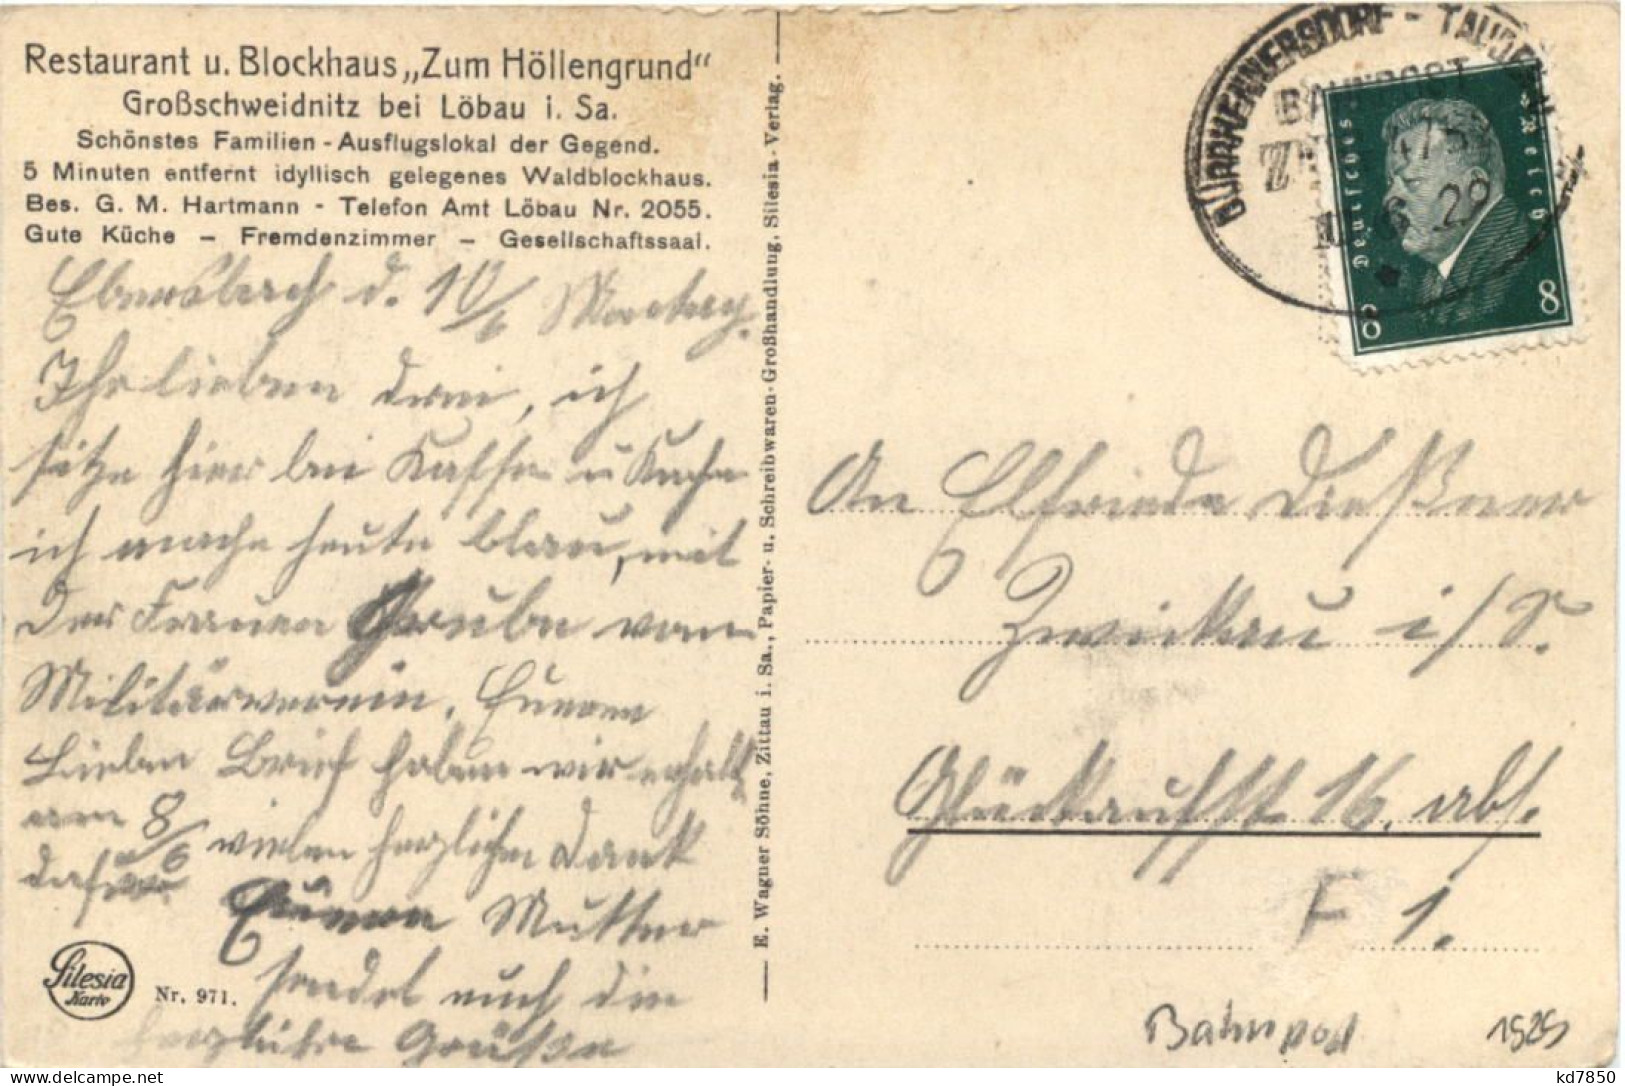 Restaurant u. Blockhaus „Zum Höllengrund"
Großschweidnitz bei Löbau i. Sa.
Schönstes Familien-Ausflugslokal der Gegend.
5 Minuten entfernt idyllisch gelegenes Waldblockhaus.
Bes. G. M. Hartmann - Telefon Amt Löbau Nr. 2055.
Gute Küche – Fremdenzimmer – Gesellschaftssaal.
Ebersbach d. 10/6 Montag.
Ihr lieben drei, ich
sitze hier bei Kaffee u Kuche
ich mache heute blau, mit
der Frauen Grube vom
Militärverein. Euern
Lieben Brief haben wir erhalt
am 8/6 vielen herzlichen Dank
dafür. Euere Mutter
sendet euch die
herzlichste Grüße
Silesia
Karte
Nr. 971.
E. Wagner Söhne, Zittau i. Sa., Papier- u. Schreibwaren-Großhandlung, Silesia-Verlag.
DÜRRHENNERSDORF - TAUBENHEIM
BAHNPOST
Z
10 6 29
Deutsches Reich
8 8
An Elfriede Dießner
Zwickau i/S.
Glückaufstr 16. abs.
F 1.
Bahnpost 1929
kd7850